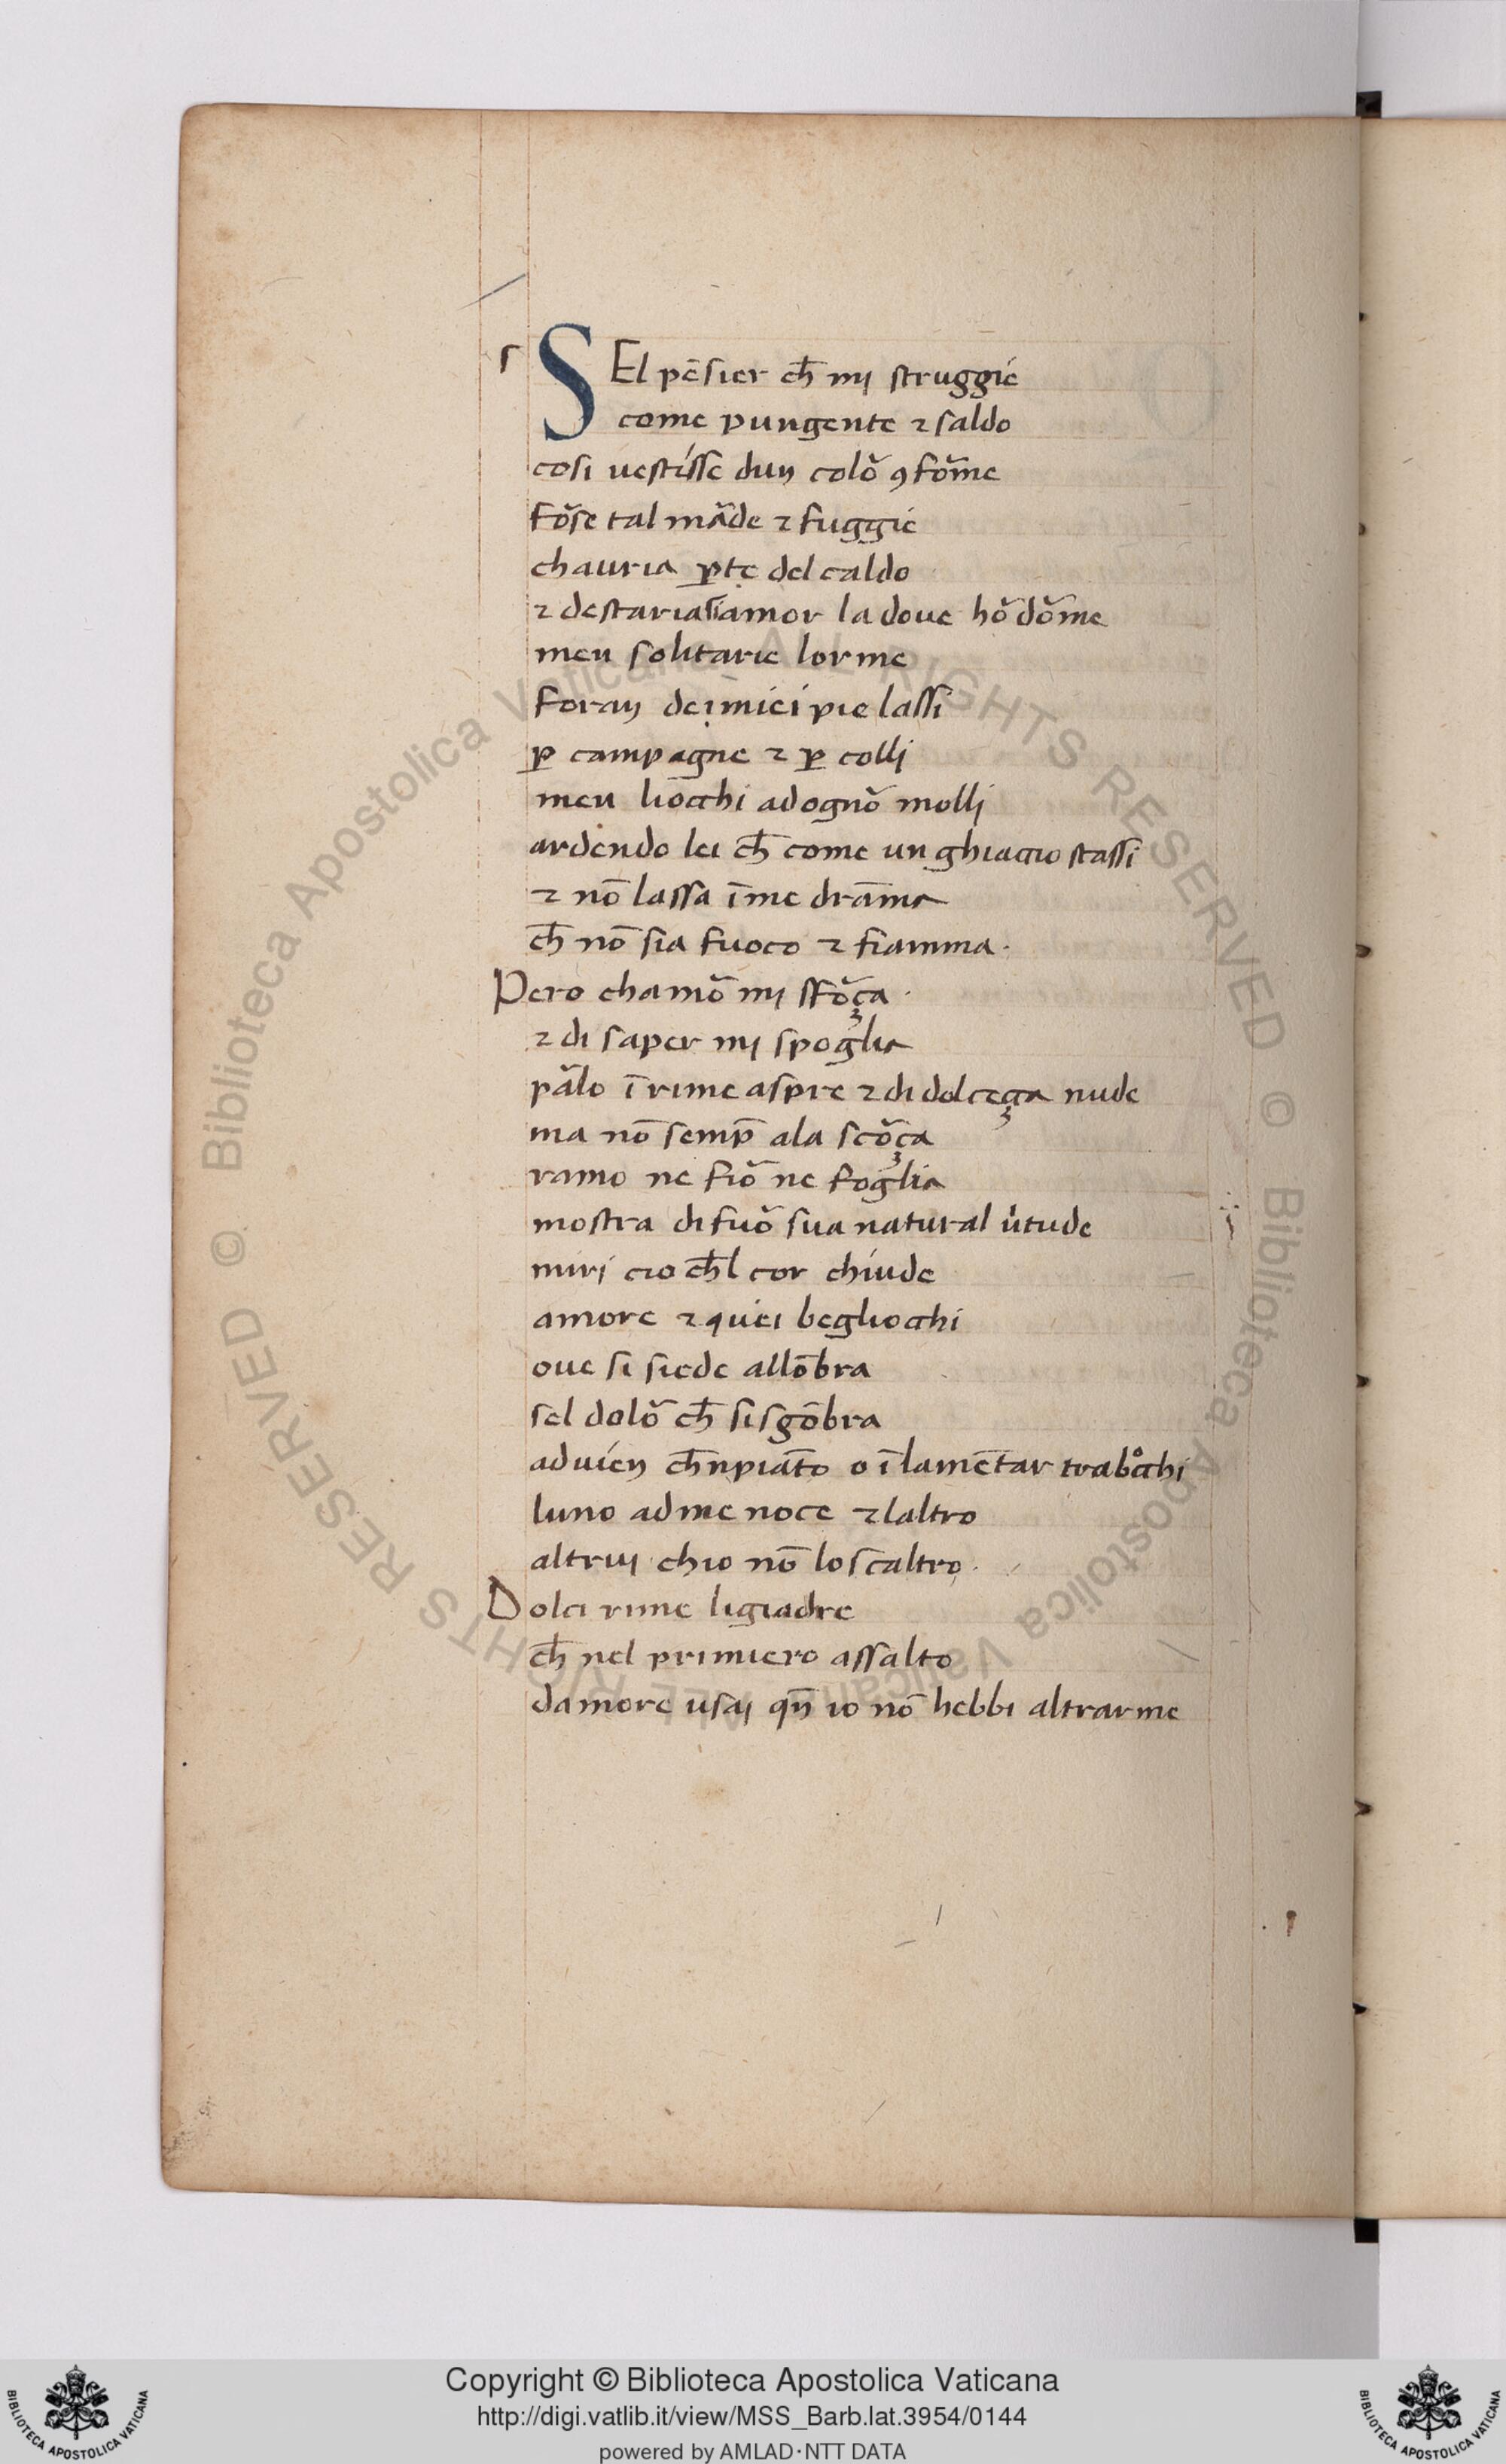 s
SEl pēsier ch̄ mj struggie
come pungente ⁊ saldo
cosi uestisse dun colo᷑ ꝯfo᷑me
Fo᷑se tal ma᷑de ⁊ fuggie
chauria ꝑte del caldo
⁊ destariasi amor la doue ho᷑ do᷑me
men solitarie lorme
Foran dei miei pie lassi
ꝑ campagne ⁊ ꝑ collj
men liocchi ad ogno᷑ mollj
ardendo lei ch̄ come un ghiaccio stassi
⁊ nō lassa ī me drāma
ch̄ nō sia fuoco ⁊ fiamma.
Pero chamo᷑ mj sfo᷑ça.
⁊ di saper mj spoglia
pa᷑lo ī rime aspre ⁊ di dolceça nude
ma nō semp̄ ala sco᷑ça
ramo ne fio᷑ ne foglia
mostra di fuo᷑ sua natural uͥtude
mirj cio ch̄l cor chiude
amore ⁊ quei begliocchi
oue si siede allōbra
sel dolo᷑ ch̄ si sgōbra
aduien ch̄npiāto o ī lamētar trabocchi
luno ad me noce ⁊ laltro
altruj chio nō lo scaltro.
Dolci rime ligiadre
ch̄ nel primiero assalto
damore usaj qn̄ io nō hebbi altrarme
© Biblioteca Apostolica Vaticana ALL RIGHTS RESERVED
© Biblioteca Apostolica Vaticana ALL RIGHTS RESERVED
Copyright © Biblioteca Apostolica Vaticana
http://digi.vatlib.it/view/MSS_Barb.lat.3954/0144
powered by AMLAD·NTT DATA
BIBLIOTECA APOSTOLICA VATICANA
BIBLIOTECA APOSTOLICA VATICANA